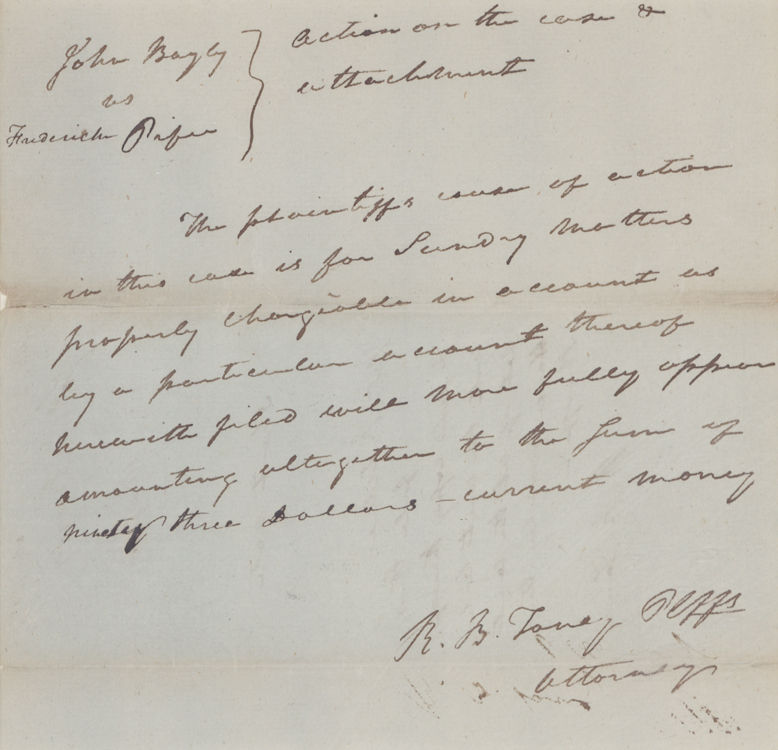 John Bayly
vs
Frederick Pifer
Action on the case &
attachment
The plaintiffs cause of action
in this case is for Sundry matters
properly chargeable in account as
by a particular account thereof
herewith filed will more fully appear
amounting altogether to the Sum of
ninety three Dollars - current money
R. B. Taney Plffs
Attorney